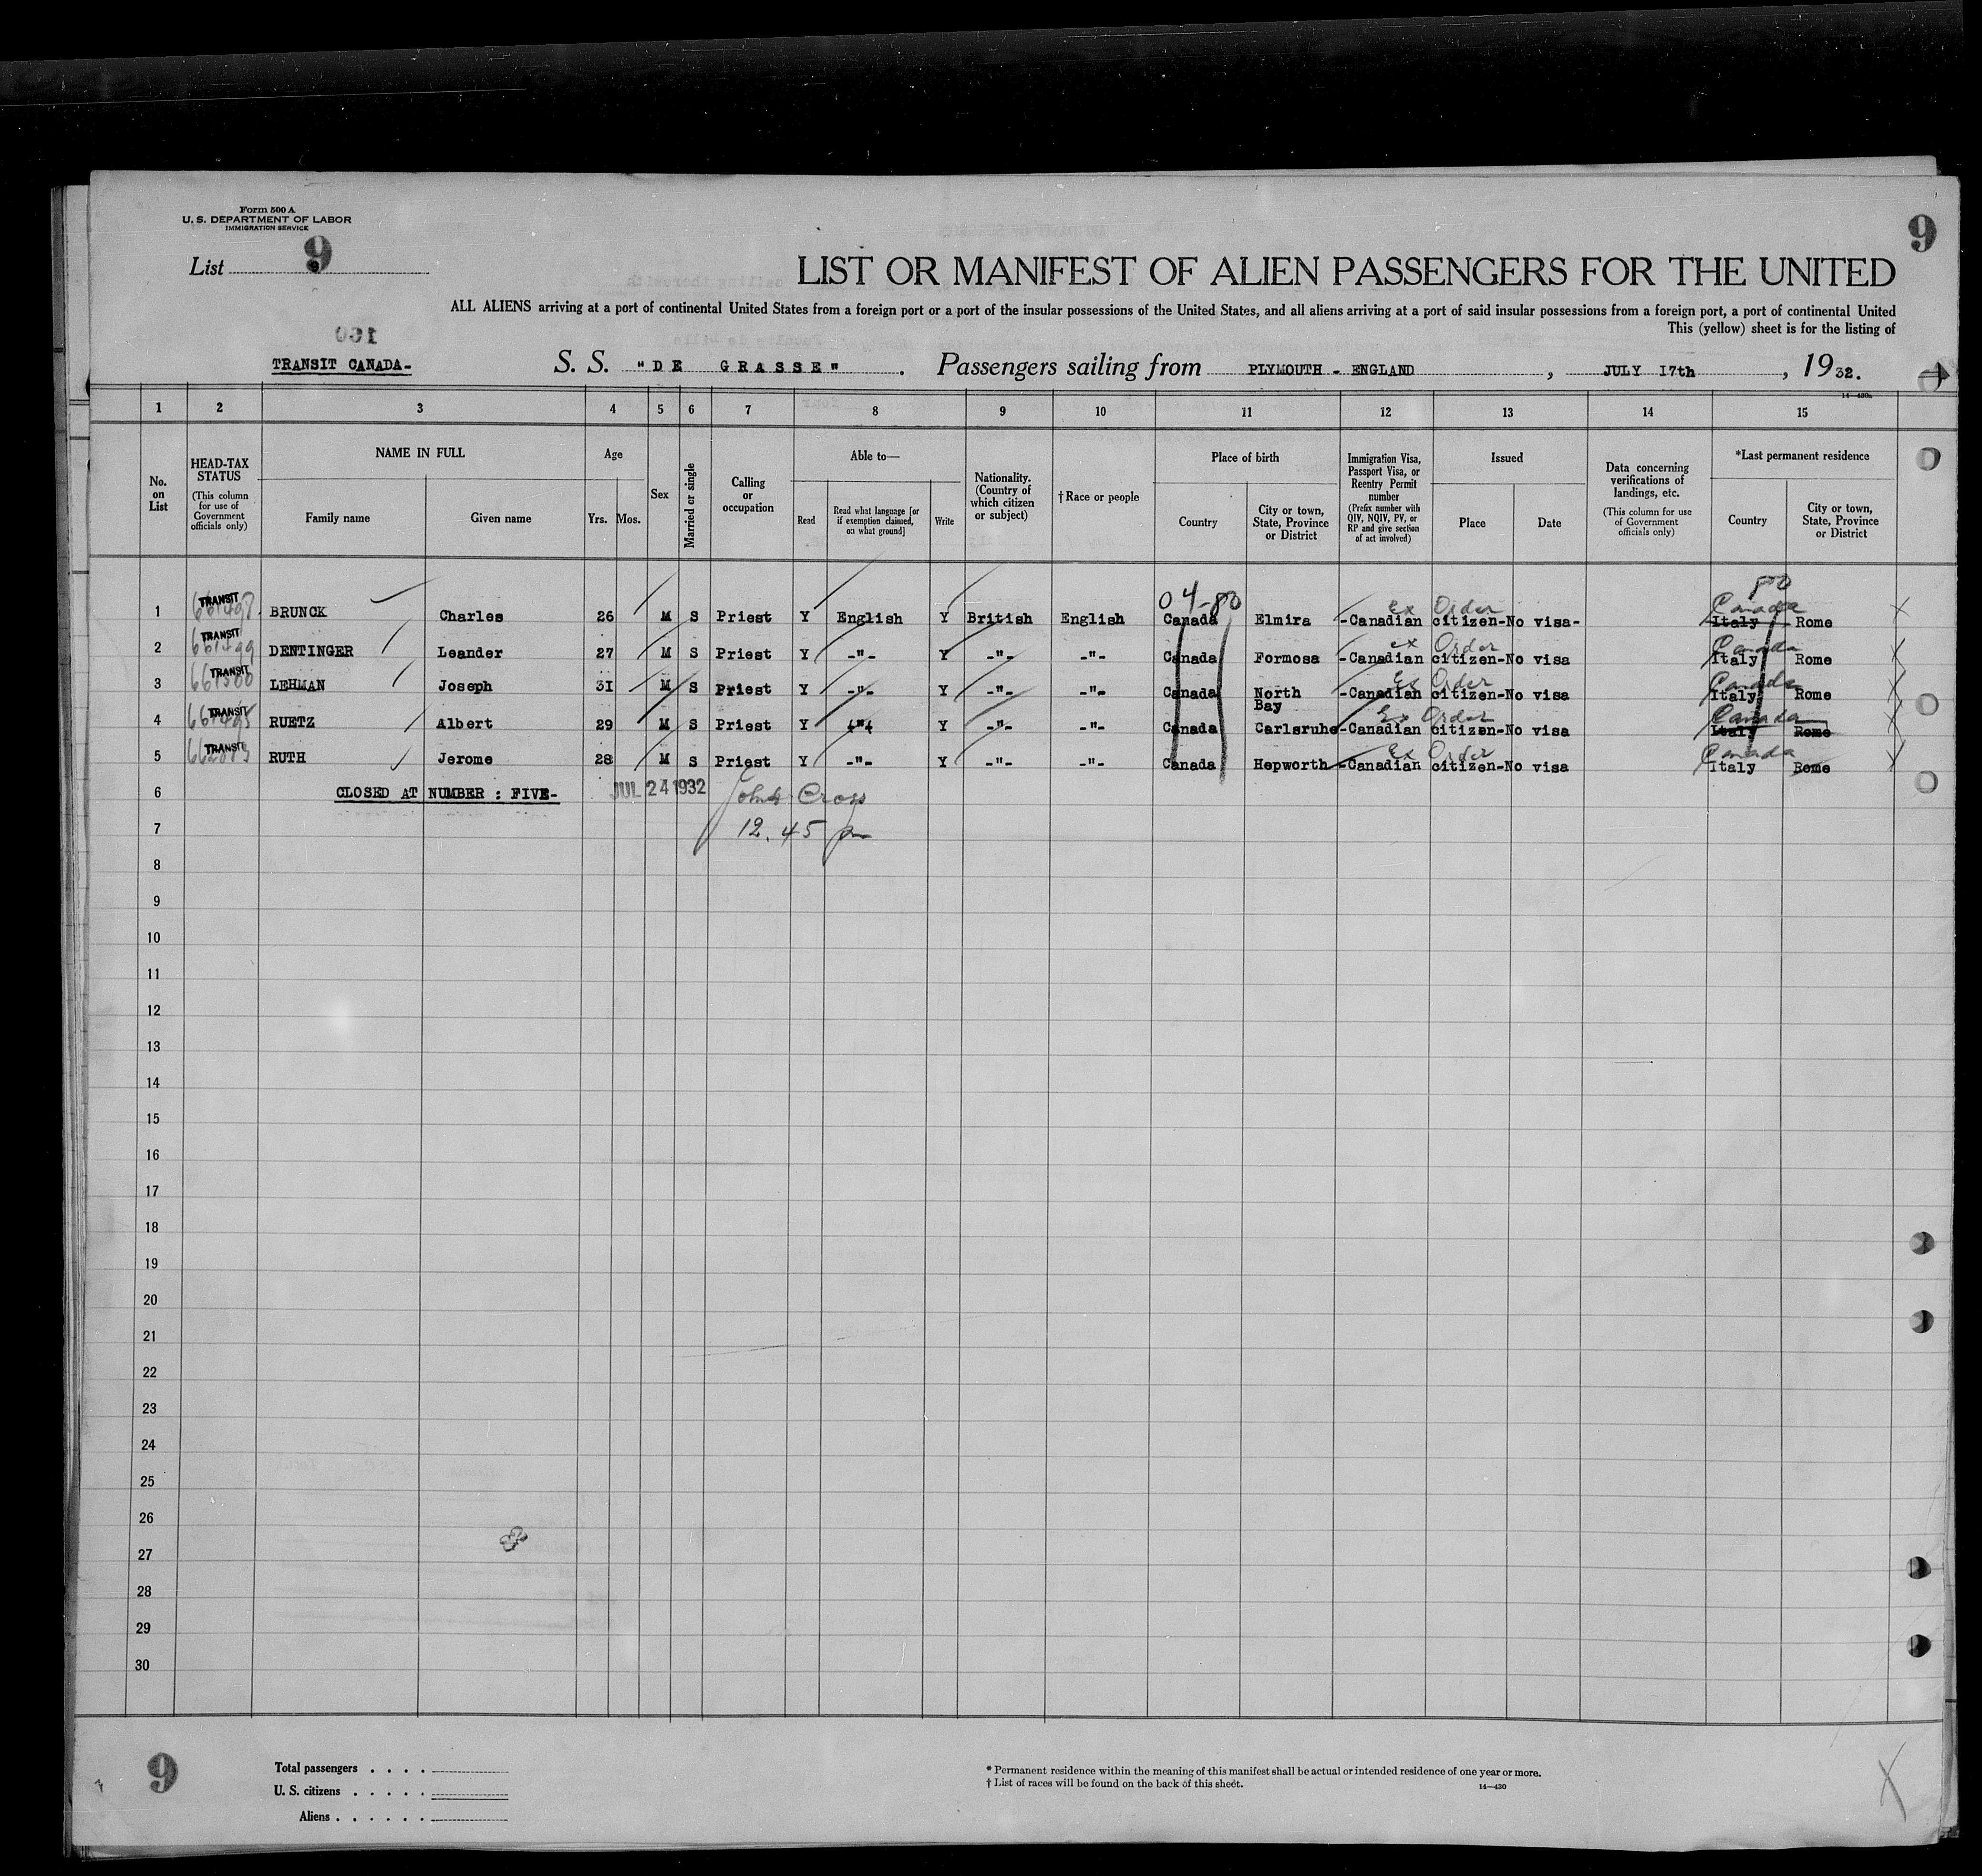 Form 500 A
U. S. DEPARTMENT OF LABOR
IMMIGRATION SERVICE
List 9
9
LIST OR MANIFEST OF ALIEN PASSENGERS FOR THE UNITED
ALL ALIENS arriving at a port of continental United States from a foreign port or a port of the insular possessions of the United States, and all aliens arriving at a port of said insular possessions from a foreign port, a port of continental United
This (yellow) sheet is for the listing of
160
TRANSIT CANADA- S. S. "DE GRASSE" . Passengers sailing from PLYMOUTH - ENGLAND , JULY I7th , 1932.
14-430a
1 2 3 4 5 6 7 8 9 10 11 12 13 14 15
No. on List
HEAD-TAX STATUS (This column for use of Government officials only)
NAME IN FULL
Family name Given name
Age
Yrs. Mos.
Sex
Married or single
Calling or occupation
Able to—
Read Read what language [or if exemption claimed, on what ground] Write
Nationality. (Country of which citizen or subject)
† Race or people
Place of birth
Country City or town, State, Province or District
Immigration Visa, Passport Visa, or Reentry Permit number (Prefix number with QIV, NQIV, PV, or RP and give section of act involved)
Issued
Place Date
Data concerning verifications of landings, etc. (This column for use of Government officials only)
*Last permanent residence
Country City or town, State, Province or District
04-80 80
1 TRANSIT 661498 BRUNCK Charles 26 M S Priest Y English Y British English Canada Elmira -Canadian citizen-No visa- ex Order Canada Italy Rome
2 TRANSIT 661499 DENTINGER Leander 27 M S Priest Y -"- Y -"- -"- Canada Formosa -Canadian citizen-No visa ex Order Canada Italy Rome
3 TRANSIT 661500 LEHMAN Joseph 3I M S Priest Y -"- Y -"- -"- Canada North Bay -Canadian citizen-No visa Ex Order Canada Italy Rome
4 TRANSIT 661495 RUETZ Albert 29 M S Priest Y -"- Y -"- -"- Canada Carlsruhe-Canadian citizen-No visa Ex Order Canada Italy Rome
5 TRANSIT RUTH Jerome 28 M S Priest Y -"- Y -"- -"- Canada Hepworth-Canadian citizen-No visa Ex Order Canada Italy Rome
6 CLOSED AT NUMBER : FIVE- JUL 24 1932
7 12.45 pm
8
9
10
11
12
13
14
15
16
17
18
19
20
21
22
23
24
25
26
27
28
29
30
9
Total passengers . . . .
U. S. citizens . . . . .
Aliens . . . . . .
* Permanent residence within the meaning of this manifest shall be actual or intended residence of one year or more.
† List of races will be found on the back of this sheet.
14—430